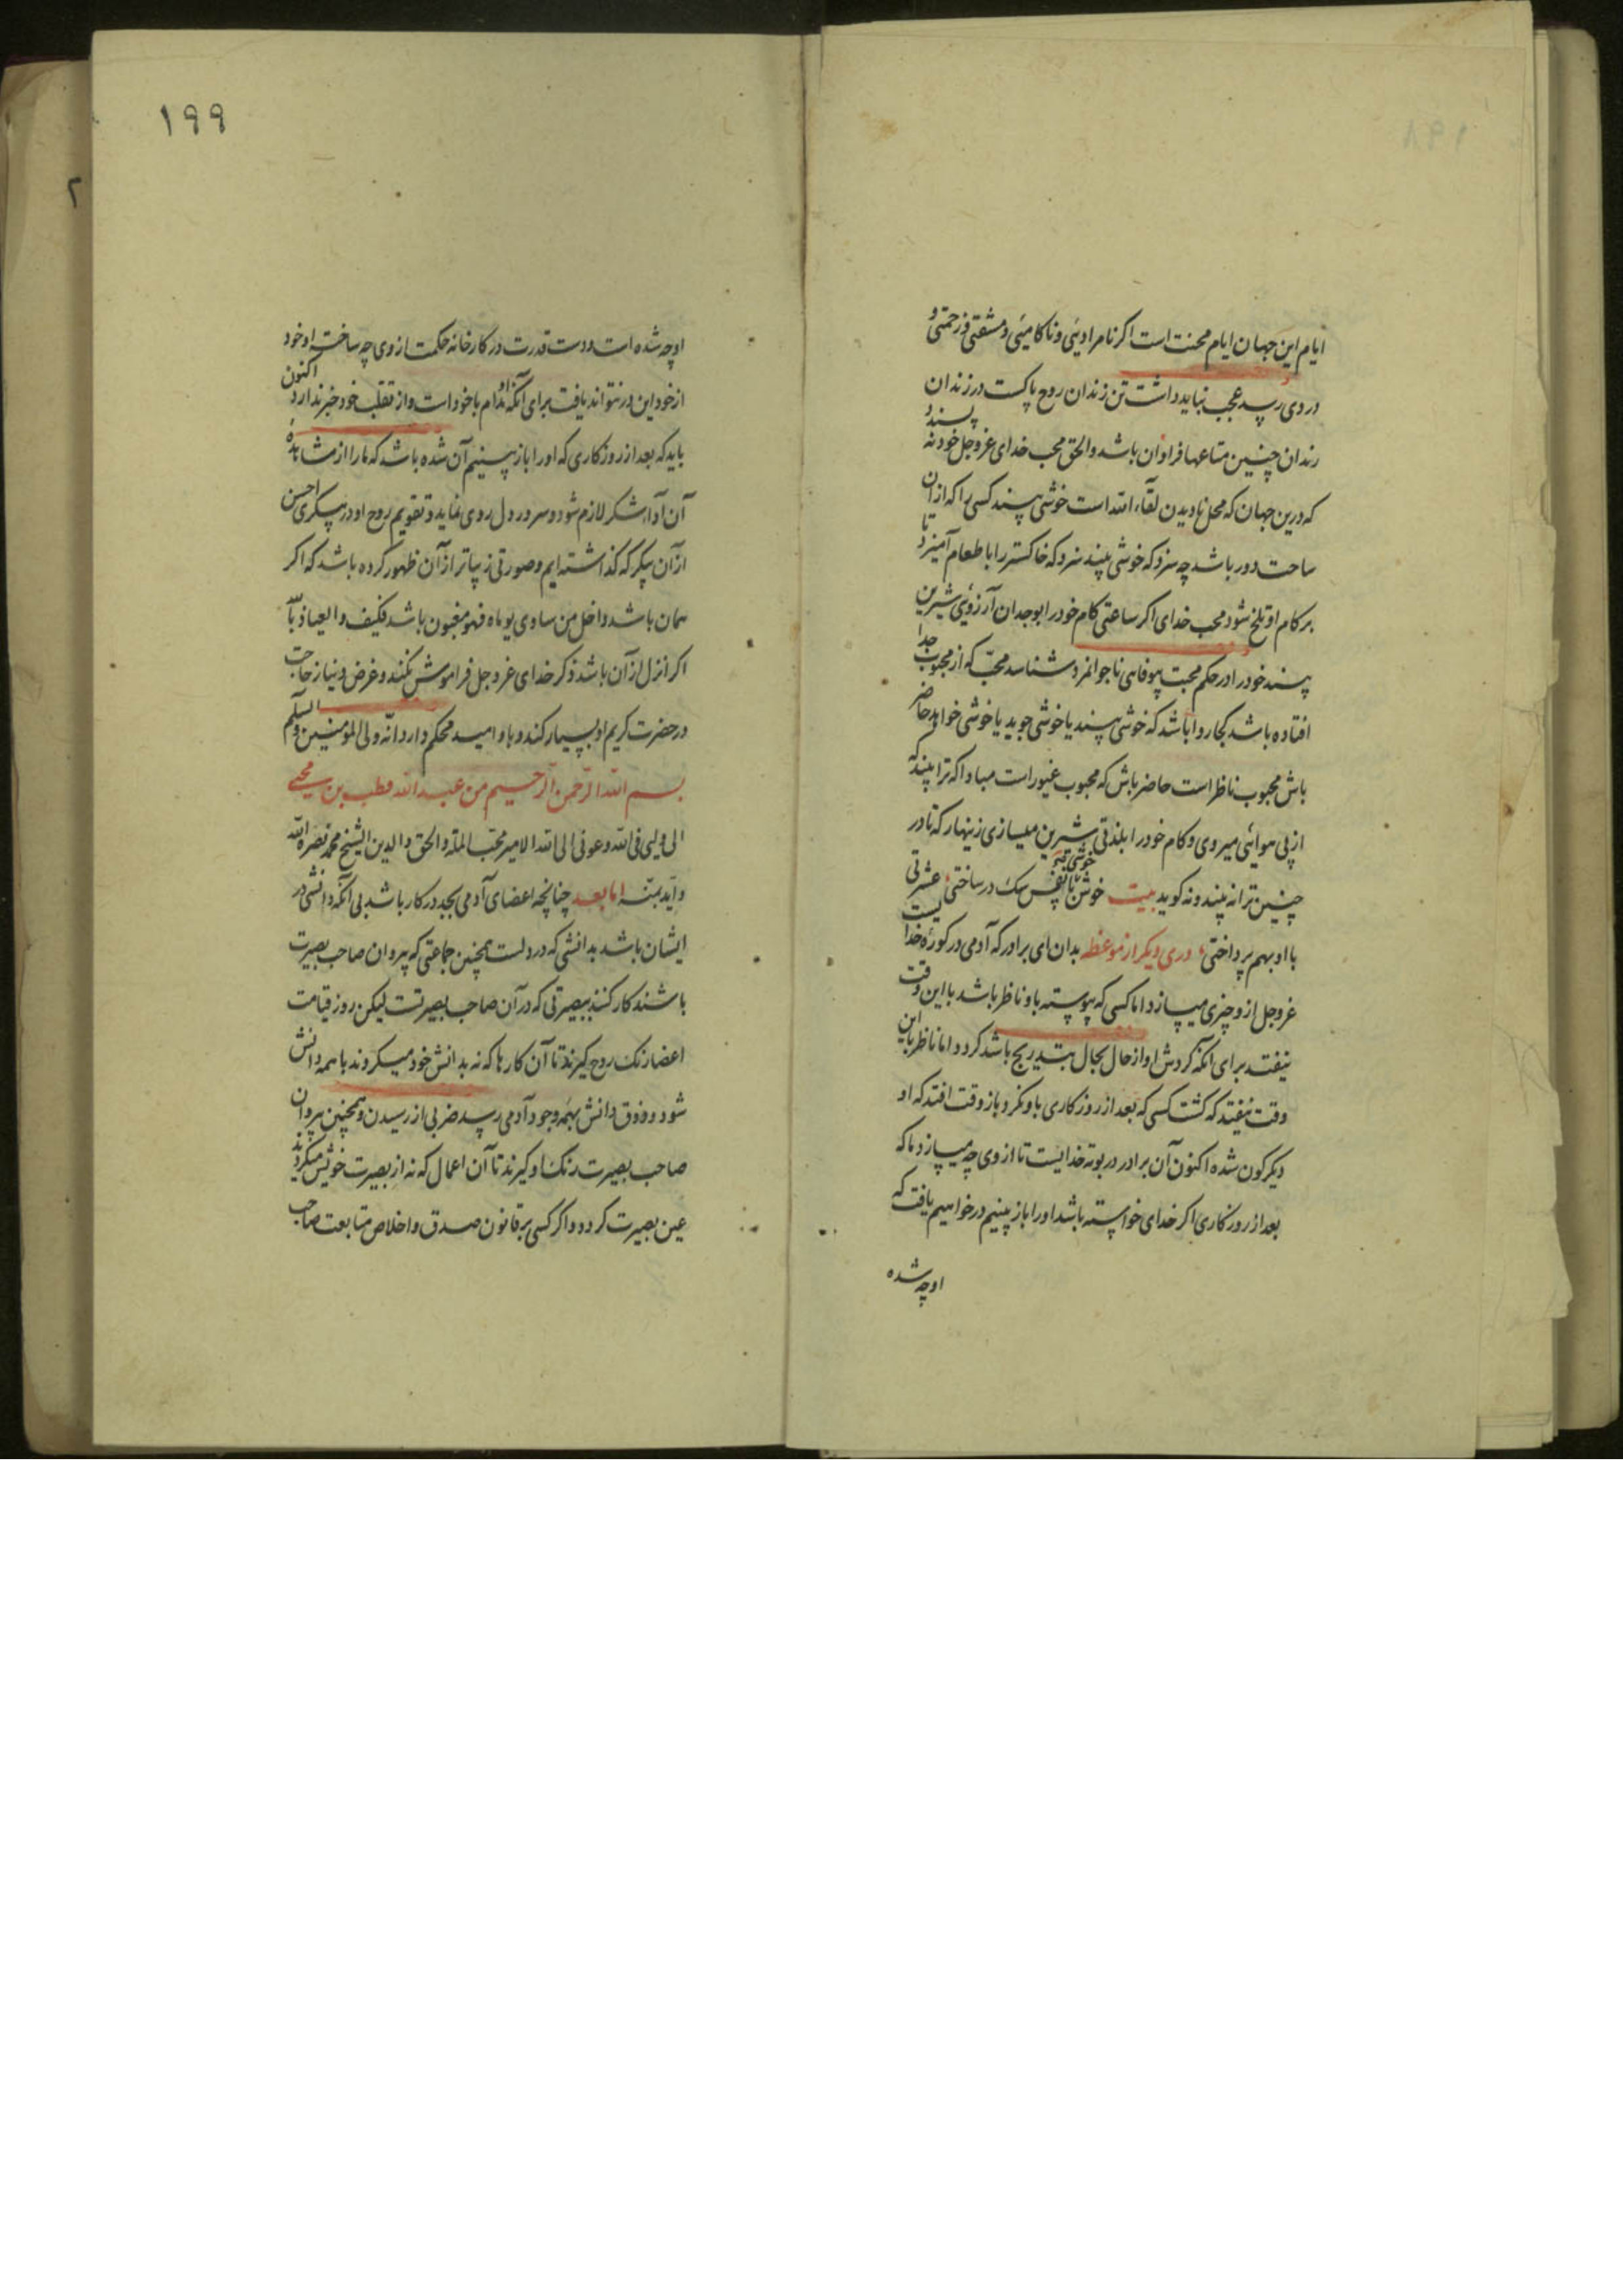 ایام این جهان ایام محنت است اکر نامرادیئی و ناکامیئی و مشقتی و زحمتی و
در وی رسد عجب نباید داشت تن زندان روح پاکست در زندان
زندان چنین متاعها فراوان باشد والحق محب خدای عزوجل خود نه پسندد
که درین جهان که محل نادیدن لقاء الله است خوشی پسند کسی را که از ان
ساحت دور باشد چه سزد که خوشی پسند سزد که خاکستر را با طعام آمیزد تا
بر کام او تلخ شود محب خدای اکر ساعتی کام خود را بوجدان آرزوئی شیرین
پسند خود را در حکم محبت بیوفائی ناجوانمرد شناسد محبّ که از محبوب جدا
افتاده باشد کجا روا باشد که خوشی پسند یا خوشی جوید یا خوشی خواهد حاضر
باش محبوب ناظر است حاضر باش که محبوب غیور است مبادا که ترا بیند که
از پی هوائی میروی و کام خود را بلذتی شیرین میسازی زینهار که تا در
چنین ترا نه بیند و نه کوید بیت خوش خوش تو با نفس سک در ساختئ عشرتی
با او بهم پرداختئ دری دیکر از موعظه بدان ای برادر که آدمی در کورۀ خدا
عزوجل از و چیزی میسازد اما کسی که پیوسته باو ناظر باشد با این وقت
نیفتد برای آنکه کردش او از حال بحال بتدریج باشد کردد اما ناظر باین
وقت نیفتد که کشت کسی که بعد از روزکاری باو نکرد باز وقت افتد که او
دیکرکون شده اکنون آن برادر در بوته خدایست تا از وی چه میسازد ما که
بعد از روزکاری اکر خدای خواسته باشد او را باز بینیم در خواهیم یافت که
او چه شده
۱۹۹
او چه شده است و دست قدرت در کارخانه حکمت از وی چه ساخته او خود
از خود این در نتواند یافت برای آنکه او مدام با خود است و از تقلب خود خبر ندارد اکنون
باید که بعد از روزکاری که او را باز بینیم آن شده باشد که ما را از مشاهدۀ
آن آداء شکر لازم شود و سرور در دل روی نماید و تقویم روح او در پیکری احسن
از آن پیکر که کذاشته ایم و صورتی زیباتر از آن ظهور کرده باشد که اکر
همان باشد داخل من ساوی یوماه فهو مغبون باشد فکیف و العیاذ بالله
اکر انزل از آن باشد ذکر خدای عزوجل فراموش نکند و عرض نیاز حاجت
در حضرت کریم او بسیار کند و باو امید محکم دارد انّه ولی المؤمنین والسلم
بسم الله الرحمن الرحیم من عبدالله قطب بن محیی
الی ولیی فی الله و عونی الی الله الامیر محب الملة والحق والدین الشیخ محمد نصره الله
و ایّد بمنّه اما بعد چنانچه اعضای آدمی بجد در کار باشد بی آنکه دانشی در
ایشان باشد بدانشی که در دلست همچنین جماعتی که پیروان صاحب بصیرت
باشند کار کنند ببصیرتی که در آن صاحب بصیرتست لیکن روز قیامت
اعضا رنک روح کیرند تا آن کارها که نه بدانش خود میکردند با همه دانش
شود و ذوق دانش بهمه وجود آدمی رسد ضربی از رسیدن و همچنین پیروان
صاحب بصیرت رنک او کیرند تا آن اعمال که نه از بصیرت خویش میکردند
عین بصیرت کردد و اکر کسی بر قانون صدق و اخلاص متابعت صاحب